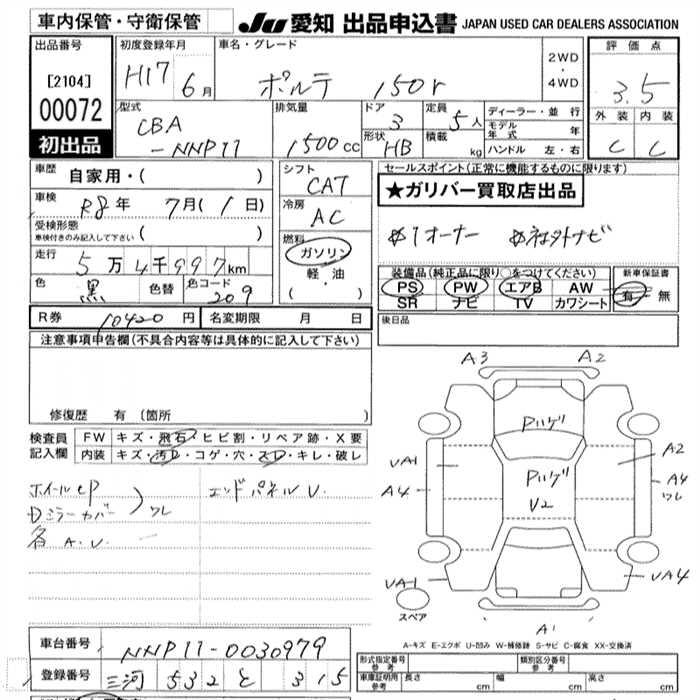 車内保管・守衛保管
JU 愛知 出品申込書 JAPAN USED CAR DEALERS ASSOCIATION
出品番号 [2104] 00072 初出品
初度登録年月 H17 6月
車名・グレード ポルテ 150r
2WD・4WD
評価点 3.5
外装 C 内装 C
型式 CBA-NNP11
排気量 1500cc
ドア 3 形状 HB
定員 5人 積載 kg
ディーラー・並行
モデル年式 年
ハンドル 左・右
車歴 自家用・( )
車検 R8年 7月(1日)
受検形態 車検付きのみ記入して下さい ( )
走行 5万4千997km
色 黒 色替 色コード 209
シフト CAT
冷房 AC
燃料 ガソリン 軽・油 ( ・ )
セールスポイント(正常に機能するものに限ります)
★ガリバー買取店出品
1オーナー
装備品(純正品に限り○をつけてください)
PS PW エアB AW
SR ナビ TV カワシート
新車保証書 有 無
R券 10420円 名変期限 月 日
後日品
注意事項申告欄(不具合内容等は具体的に記入して下さい)
修復歴 有 (箇所
検査員記入欄
FW キズ・飛石・ヒビ割・リペア跡・X要
内装 キズ・汚レ・コゲ・穴・スレ・キレ・破レ
ホイールCP
Dミラーカバー ワレ
各A.U.
エンドパネルU.
A3 A2
Pハゲ
UA1 A4
Pハゲ U2
A2
A4 ワレ
UA1 UA4
スペア
A1
A-キズ E-エクボ U-凹み W-補修跡 S-サビ C-腐食 XX-交換済
車台番号 NNP11-0030979
登録番号 三河 532 と 315
形式指定番号 参考
類別区分番号 参考
車庫証明用 参考 長さ cm 幅 cm 高さ cm